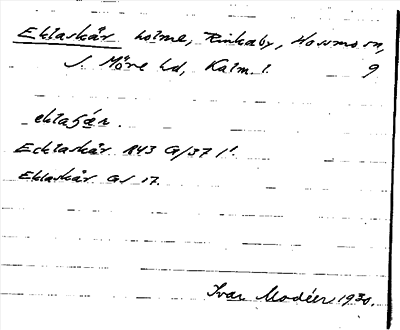 Eklaskär holme, Rinkaby, Hossmo sn,
S. Möre hd, Kalm. l. 9
Ecklaskär 143 G/37 1'.
Eklaskär GS 17.
Ivar Modéer 1930.